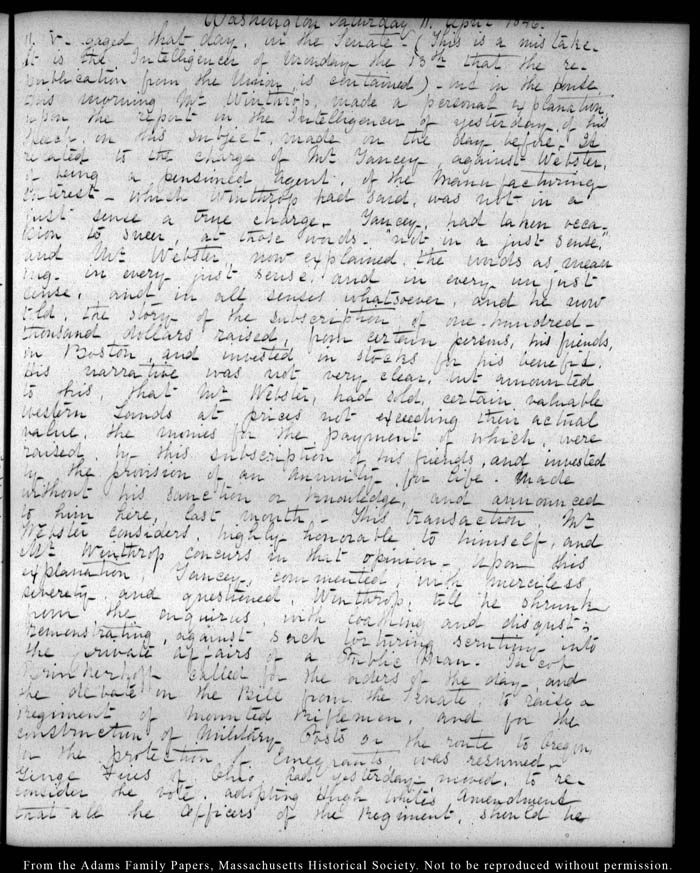 Washington Saturday 11. April 1846.
II. V - gaged that day, in the Senate - (This is a mistake.
it is the Intelligencer of Monday the 13th that the re-
publication from the Union, is contained) - and in the House
this morning Mr Winthrop, made a personal explanation
upon the report in the Intelligencer of yesterday of his
speech, on this subject, made on the day before. It
related to the charge of Mr Yancey, against Webster,
of being a pensioned agent, of the Manufacturing
interest - which Winthrop had said, was not in a
just sense a true charge. Yancey, had taken occa-
sion to sneer, at those words. "not in a just sense,"
and Mr Webster, now explained, the words as mean
ing. in every just sense, and in every unjust
sense, and in all senses whatsoever, and he now
told, the story of the subscription of one hundred-
thousand dollars raised, from certain persons, his friends,
in Boston, and invested in stocks for his benefit.
His narrative was not very clear, but amounted
to this, that Mr Webster, had sold, certain valuable
western Lands at prices not exceeding their actual
value, the monies for the payment of which, were
raised, by this subscription of his friends, and invested
by the provision of an annuity, for life. Made
without his sanction or knowledge, and announced
to him here, last month - This transaction Mr
Webster considers, highly honorable to himself, and
Mr Winthrop concurs in that opinion - Upon this
explanation, Yancey, commented, with merciless
severity, and questioned, Winthrop, till he shrunk
from the enquirus, with loathing and disgust;
remonstrating, against such torturing scrutiny into
the private affairs of a Public Man. Jacob
Brinkerhoff called for the orders of the day, and
the debate on the Bill from the Senate, to raise a
Regiment of Mounted Riflemen, and for the
construction of Military Posts on the route to Oregon,
for the protection of Emegrants, was resumed -
George Fries of Ohio, had yesterday, moved, to re-
consider the vote, adopting Hugh White's Amendment
that all the Officers of the Regiment, should be
From the Adams Family Papers, Massachusetts Historical Society. Not to be reproduced without permission.